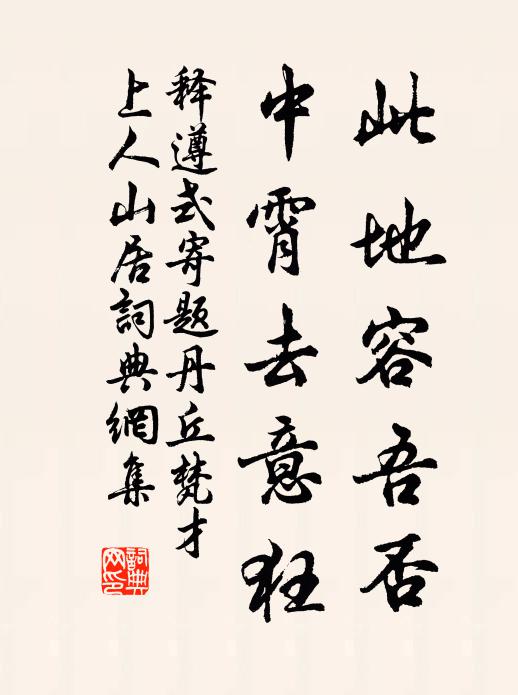 此地容吾否
中霄去意狂
释遵式寄题丹丘梵才
上人山居詞典網集
詞典
网印